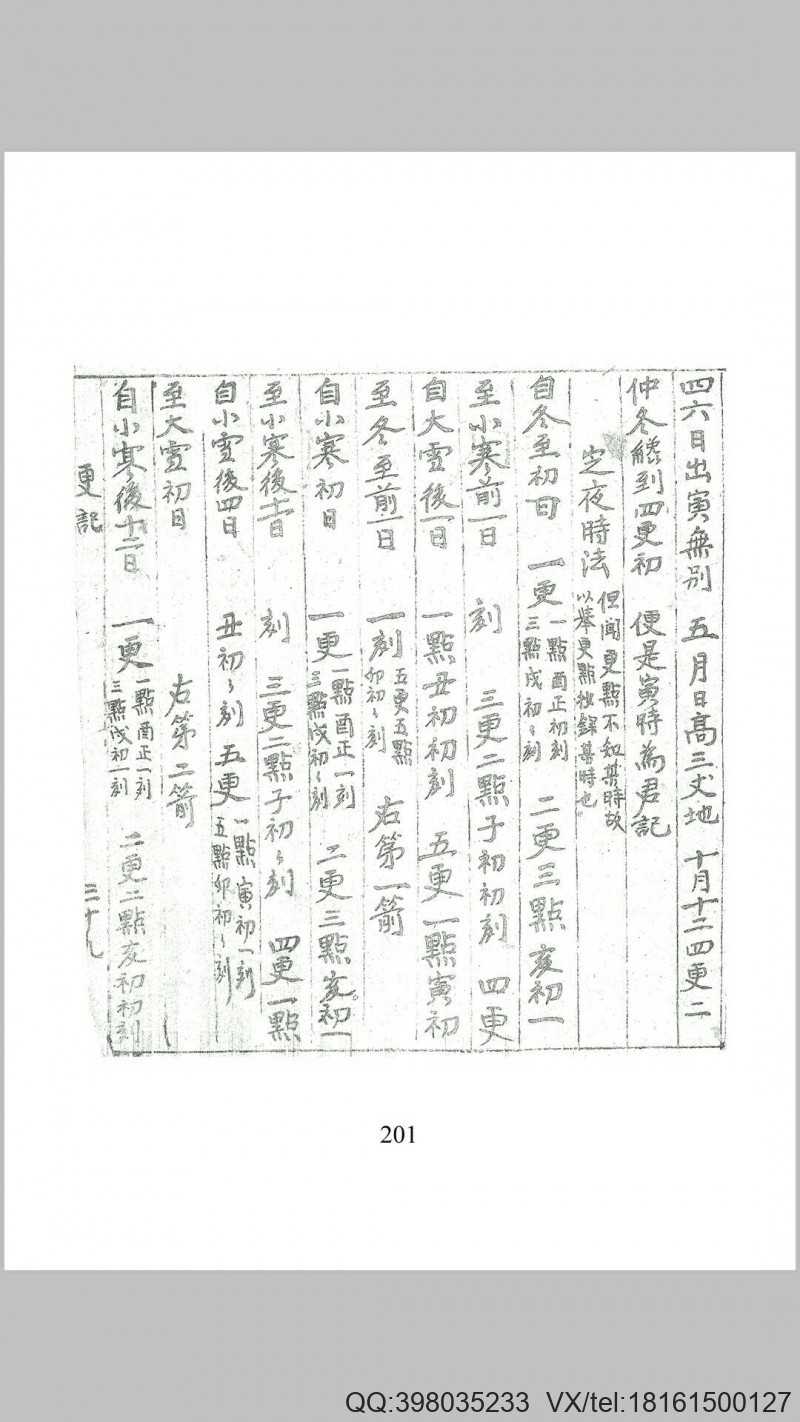 四六日出寅無別　五月日高三丈地　十月十二四更二
仲冬纔到四更初　便是寅時為君記
定夜時法　但聞更點不知某時故
以举更點抄錄某時也
自冬至初日　一更　一點酉正初刻
三點戌初〻刻　二更三點亥初一
至小寒前一日　刻　三更二點子初初刻　四更
自大雪後一日　一點丑初初刻　五更一點寅初
至冬至前一日　一刻　五更五點
卯初〻刻　右第一箭
自小寒初日　一更　一點酉正一刻
三點戌初〻刻　二更三點亥初一
至小寒後十一日　刻　三更二點子初〻刻　四更一點
自小雪後四日　丑初〻刻　五更　一點寅初一刻
五點卯初〻刻
至大雪初日　右第二箭
自小寒後十二日　一更　一點酉正一刻
三點戌初一刻　二更二點亥初初刻
更記　三十九
201
QQ:398035233 VX/tel:18161500127